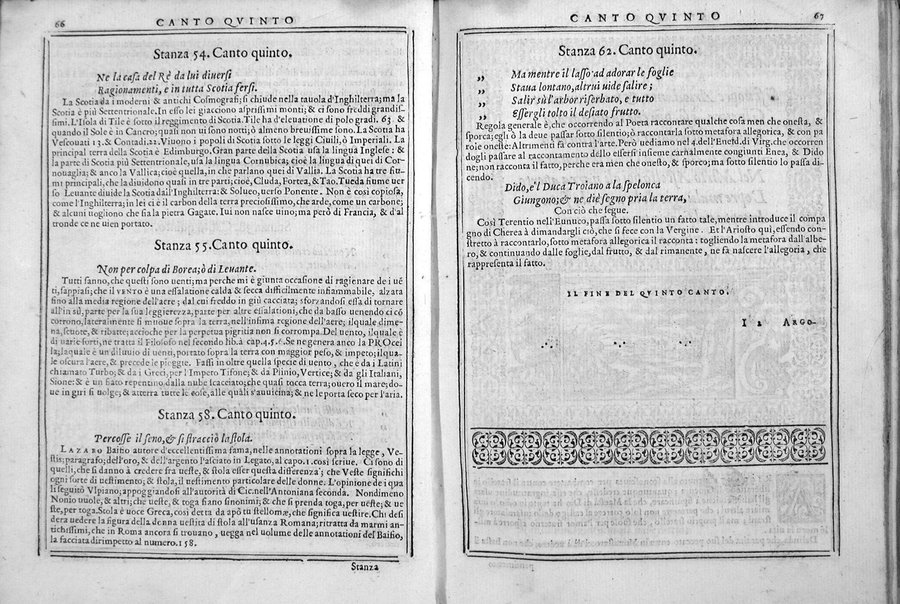 66
CANTO QVINTO
Stanza 54. Canto quinto.
Ne la casa del Rè da lui diuersi
Ragionamenti, e in tutta Scotia fersi.
La Scotia da i moderni & antichi Cosmografi; si chiude nella tauola d'Inghilterra; ma la
Scotia è più Settentrionale. In esso lei giacciono asprissimi monti; & ci sono freddi grandis-
simi. L'Isola di Tile è sotto il reggimento di Scotia. Tile ha d'eleuatione di polo gradi. 63. &
quando il Sole è in Cancro; quali non ui sono notti; ò almeno breuissime sono. La Scotia ha
Vescouati 13. & Contadi. 21. Viuono i popoli di Scotia sotto le leggi Ciuili, ò Imperiali. La
principal terra della Scotia è Edimburgo. Gran parte della Scotia usa la lingua Inglese: &
a parte di Scotia più Settentrionale, usa la lingua Cornubica; cioè la lingua di quei di Cor-
nouaglia; & anco la Vallica; cioè quella, in che parlano quei di Vallia. La Scotia ha tre fiu
mi principali, che la diuidono quasi in tre parti; cioè, Cluda, Fortea, & Tao. Tueda fiume uer
so Leuante diuide la Scotia dall'Inghilterra: & Solueo, uerso Ponente. Non è così copiosa,
come l'Inghilterra; in lei ci è il carbon della terra preciosissimo, che arde, come un carbone;
& alcuni uogliono che sia la pietra Gagate. Iui non nasce uino; ma però di Francia, & d'al
tronde ce ne uien portato.
Stanza 55. Canto quinto.
Non per colpa di Borea; ò di Leuante.
Tutti sanno, che questi sono uenti; ma perche mi è giunta occasione di ragienare de i ué
ti, sappiasi; che il VENTO è una essalatione calda & secca difficilmente infiammabile, alzata
fino alla media regione dell'aere; dal cui freddo in giù cacciata; sforzandosi essa di tornare
all'in sù, parte per la sua leggierezza, parte per altre essalationi, che da basso uenendo ci có
corrono, lateralmente si mtoue sopra la terra, nell'infima regione dell'aere; il quale dime-
na, scuote, & ribatte; accioche per la perpetua pigritia non si corrompa. Del uento, il quale è
di uarie sorti, ne tratta il Filosofo nel secondo lib. à cap. 4. 5. 6. Se ne genera anco la PROcel
la; la quale è un diluuio di uenti, portato sopra la terra con maggior peso, & impeto; il qua-
le oscura l'aere, & precede le pioggie. Fassi in oltre quella specie di uento, che è da i Latini
chiamato Turbo; & da i Greci, per l'impeto Tifone; & da Plinio, Vertice; & da gli Italiani,
Sione: & è un fiato repentino dalla nube scacciato; che quasi tocca terra; ouero il mare; do-
ue in giri si uolge; & atterra tutte le cose, alle quali s'auuicina; & ne le porta seco per l'aria.
Stanza 58. Canto quinto.
Percosse il seno, & si stracciò la stola.
LAZARO Baifio autore d'eccellentissima fama, nelle annotationi sopra la legge, Ve-
stis, paragrafo; dell'oro, & dell'argento l'asciato in Legato, al capo. 1. così scriue. Ci sono di
quelli, che si danno à credere fra ueste, & stola esser questa differenza; che Veste significhi
ogni sorte di uestimento; & stola, il uestimento particolare delle donne. L'opinione de i qua
li seguitò Vlpiano; appoggiandosi all'autorità di Cic. nell'Antoniana seconda. Nondimeno
Nonio uuole, & altri; che ueste, & toga siano sinonimi; & che si prenda toga, per ueste; & ue
ste, per toga. Stola è uoce Greca, così detta da apò tu stellomæ, che significa uestire. Chi desi
dera uedere la figura della donna uestita di stola all'usanza Romana; ritratta da marmi an-
tichissimi, che in Roma ancora si trouano, uegga nel uolume delle annotationi del Baifio,
la facciata dirimpetto al numero. 158.
Stanza
CANTO QVINTO
67
Stanza 62. Canto quinto.
„ Ma mentre il lasso ad adorar le foglie
„ Staua lontano, altrui uide salire;
„ Salir sù l'arbor riserbato, e tutto
„ Essergli tolto il desiato frutto.
Regola generale è, che occorrendo al Poeta raccontare qualche cosa men che onesta, &
sporca; egli ò la deue passar sotto silentio; ò raccontarla sotto metafora allegorica, & con pa
role oneste: Altrimenti fà contra l'arte. Però uediamo nel 4. dell'Eneid. di Virg. che occorren
dogli passare al raccontamento dello essersi insieme carnalmente congiunti Enea, & Dido
ne; non racconta il fatto, perche era men che onesto, & sporco; ma sotto silentio lo passa di-
cendo.
Dido, e'l Duca Troiano a la spelonca
Giungono; & ne diè segno pria la terra,
Con ciò che segue.
Così Terentio nell'Eunuco, passa sotto silentio un fatto tale, mentre introduce il compa
gno di Cherea à dimandargli ciò, che si fece con la Vergine. Et l'Ariosto qui, essendo con-
stretto à raccontarlo, sotto metafora allegorica il racconta: togliendo la metafora dall'albe-
ro, & continuando dalle foglie, dal frutto, & dal rimanente, ne fà nascere l'allegoria, che
rappresenta il fatto.
IL FINE DEL QVINTO CANTO.
I 2 ARGO-